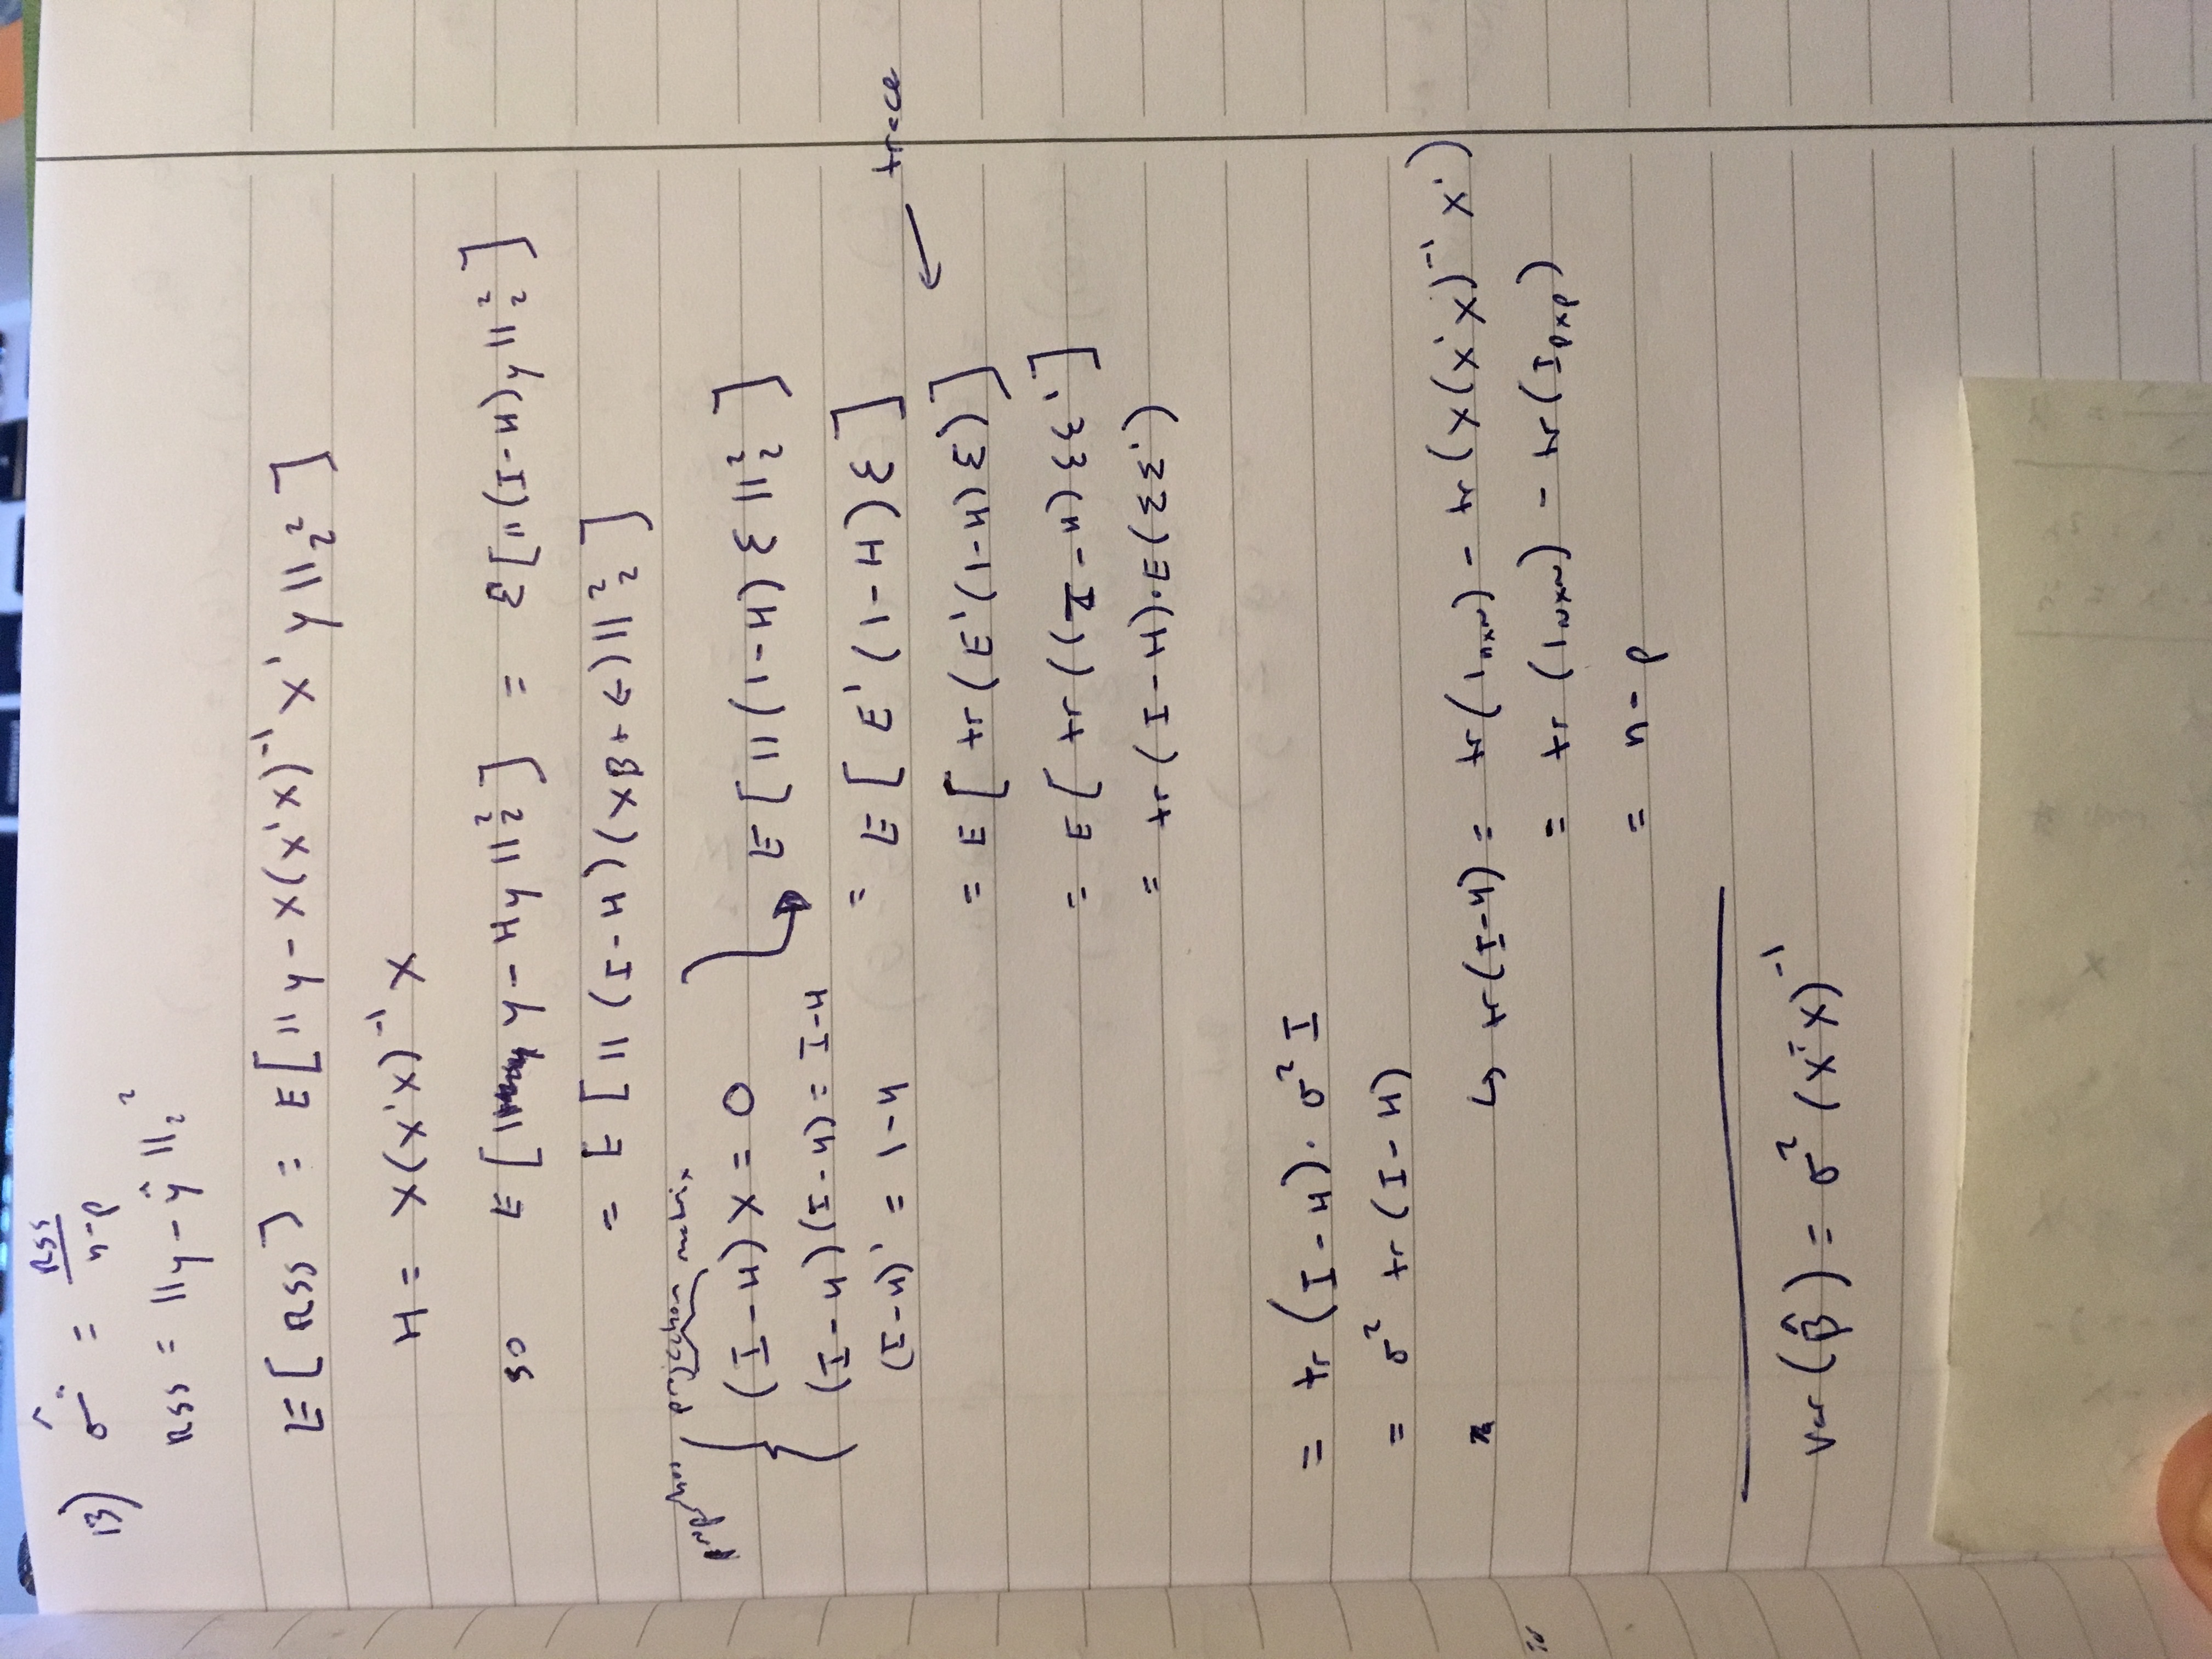 13) σ̂² = RSS / n-p
RSS = ||y - ŷ||₂²
E[RSS] = E[||y - X(X'X)⁻¹X'y||₂²]
H = X(X'X)⁻¹X
so E[|| y - Hy||₂²] = E[||(I-H)y||₂²]
= E[||(I-H)(Xβ + ϵ)||₂²]
properties projection matrix
(I-H)X = 0
E[||(1-H)ε||₂²]
(I-H)(I-H) = I-H
= E[ε'(1-H)ε]
(I-H)' = 1-H
trace
= E[tr(ε'(1-H)ε)]
= E[tr((I-H)εε']
= tr(I-H)·E(εε')
= tr(I-H)· σ² I
= σ² tr(I-H)
↳ tr(I-H) = tr(1ₙₓₙ) - tr(X(X'X)⁻¹X')
= tr(1ₙₓₙ) - tr(Iₚₓₚ)
= n-p
Var(β̂) = σ²(XᵀX)⁻¹